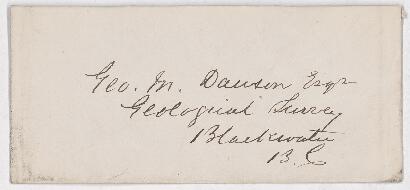 Geo. M. Dawson Esqr
Geological Survey
Blackwater
B.C